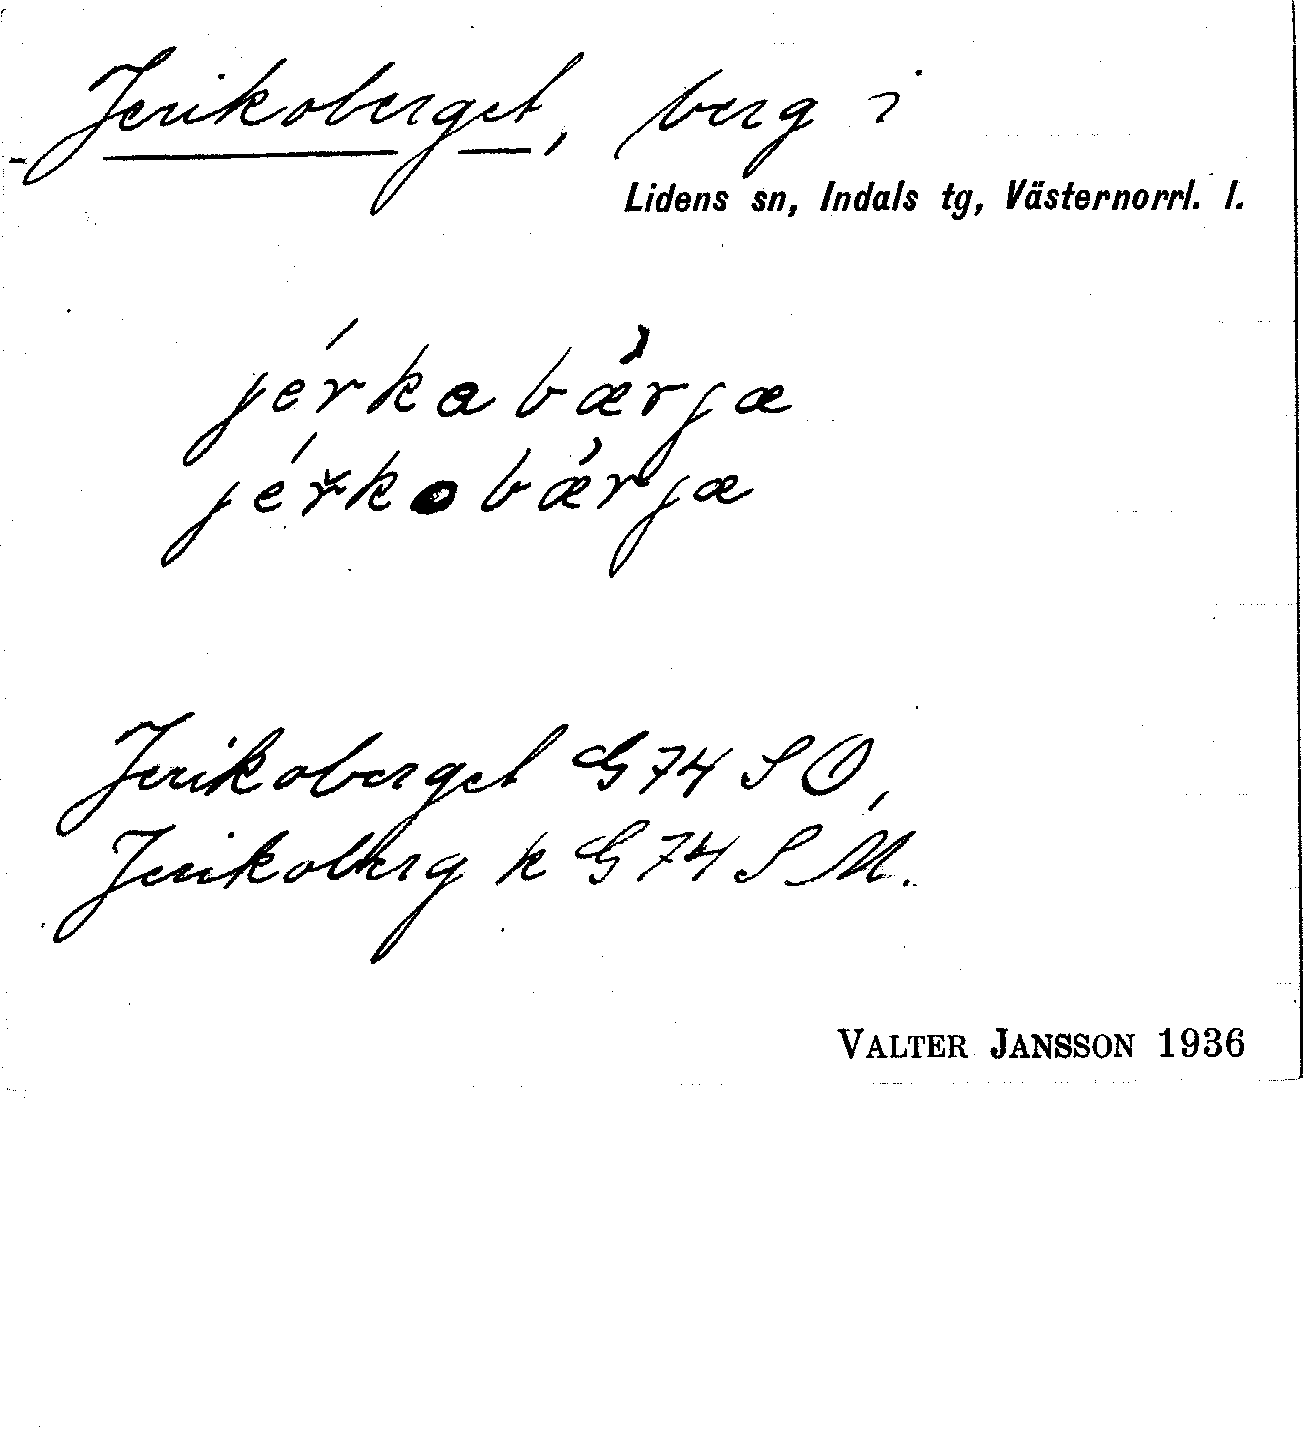 Jerikoberget, berg i
Lidens sn, Indals tg, Västernorrl. l.
jérkabæ̀rjæ
jérkobæ̀rjæ
Jerikoberget G 74 S O,
Jerikoberg k G 74 S M.
VALTER JANSSON 1936